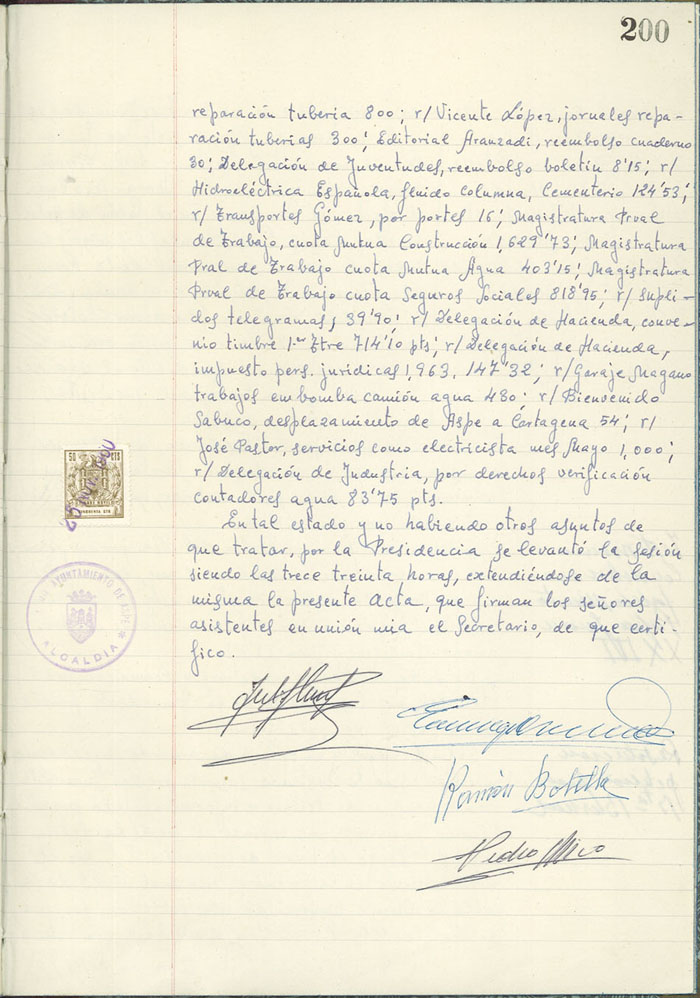 200
reparación tuberia 800; r/ Vicente López, jornales repa-
ración tuberias 300; Editorial Aranzadi, reembolso cuaderno
30; Delegación de Juventudes, reembolso boletin 8'15; r/
Hidroeléctrica Española, fluido columna, Cementerio 124'53;
r/ Transportes Gómez, por portes 16; Magistratura Proal
de Trabajo, cuota Mutua Construcción 1,629'73; Magistratura
Pral de Trabajo cuota Mutua Agua 403'15; Magistratura
Proal de Trabajo cuota Seguros Sociales 818'95; r/ supli-
dos telegramas, 39'90; r/ Delegación de Hacienda, conve-
nio timbre 1er Ztre 714'10 pts; r/ Delegación de Hacienda,
impuesto pers. juridicas 1,963, 147'32; r/ Garaje Magano
trabajos en bomba camión agua 480; r/ Bienvenido
Sabuco, desplazamiento de Aspe a Cartagena 54; r/
José Pastor, servicios como electricista mes Mayo 1,000;
r/ Delegación de Industria, por derechos verificación
contadores agua 83'75 pts.
En tal estado y no habiendo otros asuntos de
que tratar, por la Presidencia se levantó la sesión
siendo las trece treinta horas, extendiéndose de la
misma la presente Acta, que firman los señores
asistentes en unión mia el Secretario, de que certi-
fico.
50 CTS
AYUNTAMIENTO DE ASPE
ALCALDIA
Ramón Botella
Pedro Mico